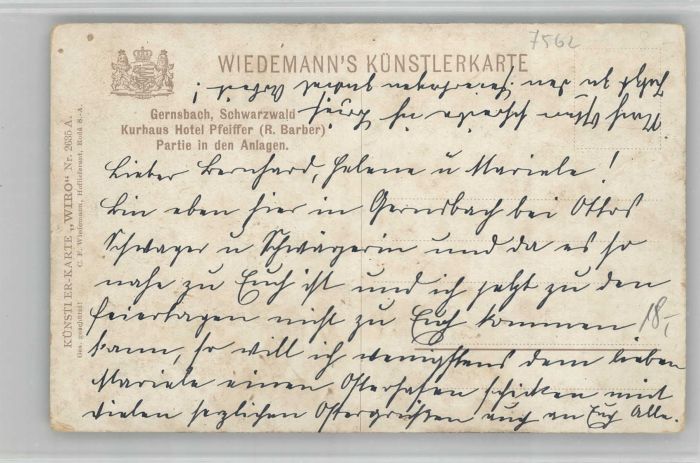 7562
WIEDEMANN'S KÜNSTLERKARTE
Gernsbach, Schwarzwald
Kurhaus Hotel Pfeiffer (R. Barber)
Partie in den Anlagen.
KÜNSTLER-KARTE „WIRO“ Nr. 2635 A.
Ges. geschützt! C. F. Wiedemann, Hoflieferant, Roda S.-A.
Lieber Bernhard, Helene u Mariele!
Bin eben hier in Gernsbach bei Ottos
Schwager u Schwägerin und da es so
nahe zu Euch ist und ich jetzt zu den
Feiertagen nicht zu Euch kommen
kann, so will ich wenigstens dem lieben
Mariele einen Osterhasen schicken mit
vielen herzlichen Ostergrüßen auch an Euch Alle.
18,-
Nach schreibe ich
zu den Feiertagen